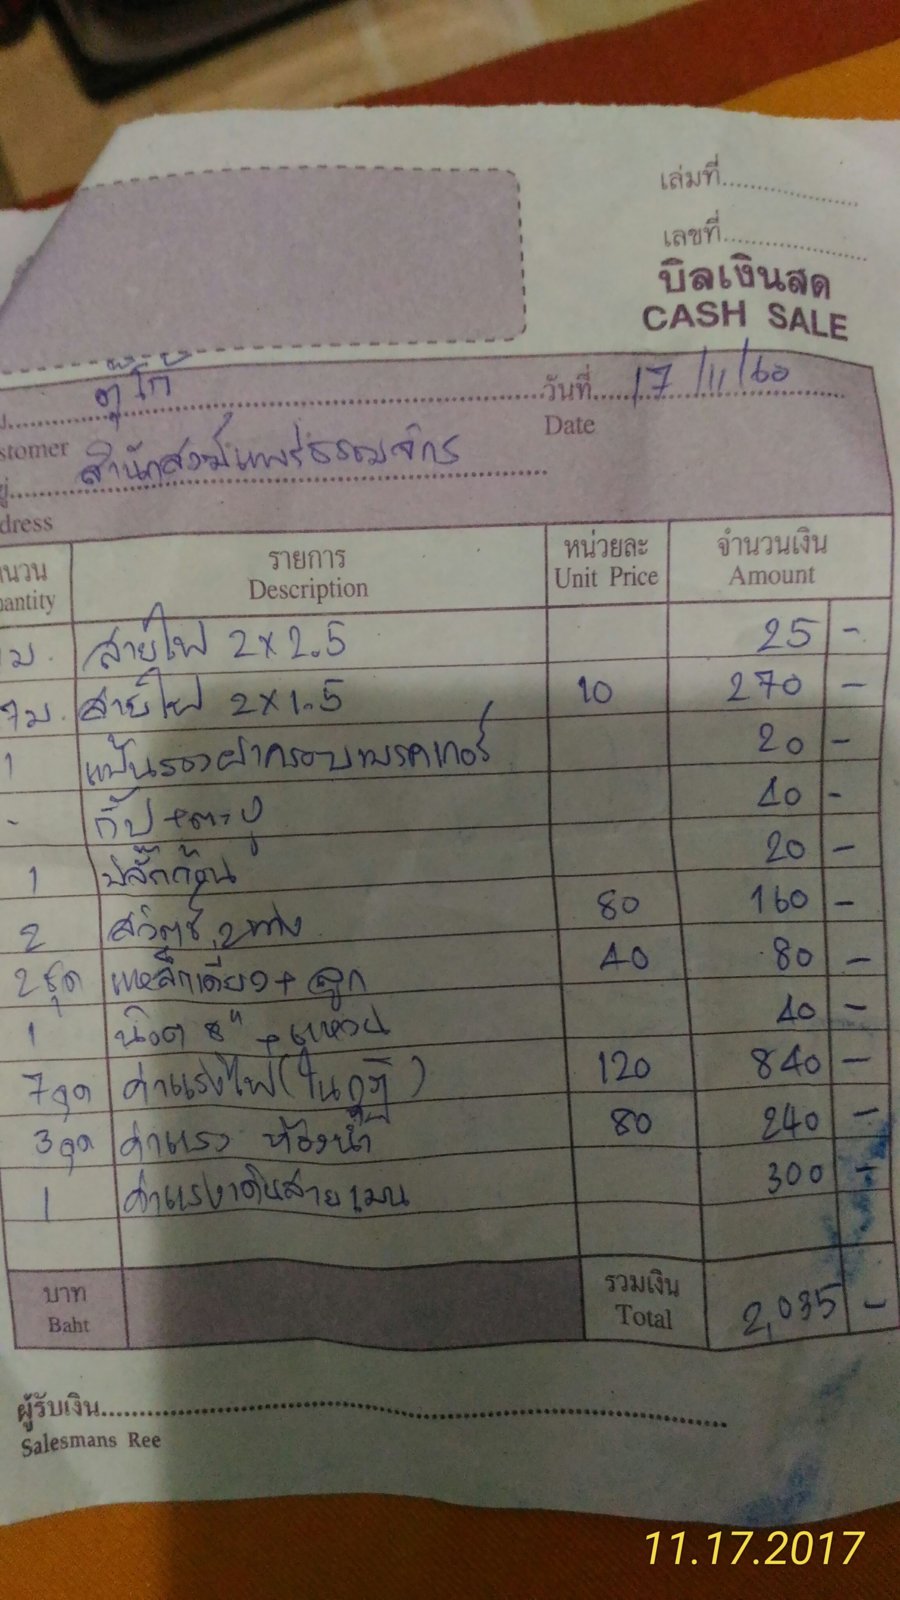 เล่มที่
เลขที่
บิลเงินสด
CASH SALE
ตู่โก้ วันที่ 17/11/60
stomer Date
สำนักสงฆ์แพร่ธรรมจักร
dress
นวน รายการ หน่วยละ จำนวนเงิน
antity Description Unit Price Amount
ม. สายไฟ 2x2.5 25 -
7ม. สายไฟ 2x1.5 10 270 -
1 แป้นรองฝาครอบเบรคเกอร์ 20 -
- กิ๊ป+ตะปู 40 -
1 20 -
2 สวิตซ์ 2 ทาง 80 160 -
2ชุด เหล็กเดี่ยว + ลูก 40 80 -
1 น๊อต 8" + แหวน 40 -
7จุด ค่าแรงไฟ (ในกุฏิ) 120 840 -
3จุด ค่าแรง ห้องน้ำ 80 240 -
1 ค่าแรงเดินสายเมน 300 -
บาท รวมเงิน
Baht Total 2,035 -
ผู้รับเงิน
Salesmans Ree
11.17.2017